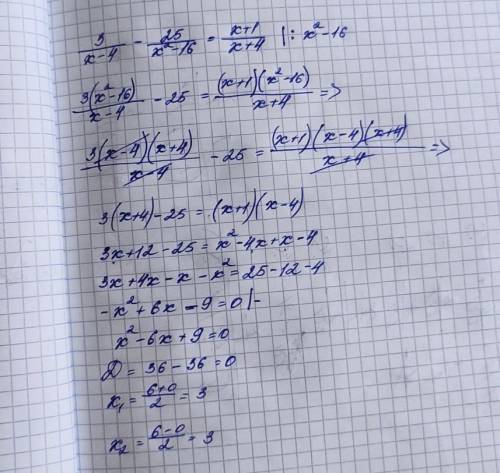 3/(x-4) - 25/(x²-16) = (x+1)/(x+4) |: x²-16
3(x²-16)/(x-4) - 25 = (x+1)(x²-16)/(x+4) =>
3(x-4)(x+4)/(x-4) - 25 = (x+1)(x-4)(x+4)/(x+4) =>
3(x+4)-25 = (x+1)(x-4)
3x+12-25 = x²-4x+x-4
3x+4x-x-x²=25-12-4
-x²+6x-9=0 |-
x²-6x+9=0
D = 36-36=0
x₁ = (6+0)/2 = 3
x₂ = (6-0)/2 = 3